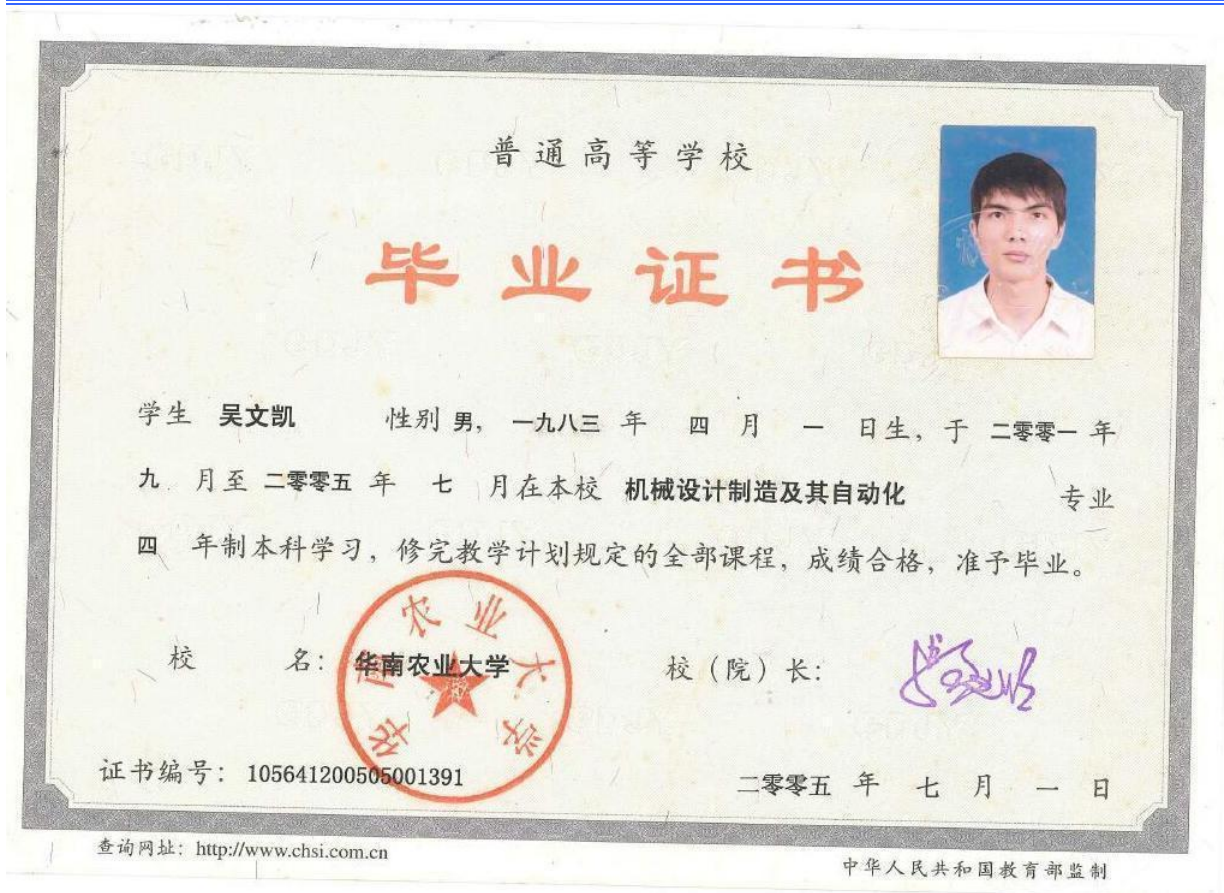 普通高等学校
毕业证书
学生 吴文凯 性别 男， 一九八三 年 四 月 一 日生，于 二零零一 年
九 月至 二零零五 年 七 月在本校 机械设计制造及其自动化 专业
四 年制本科学习，修完教学计划规定的全部课程，成绩合格，准予毕业。
华南农业大学
校 名：华南农业大学 校（院）长：
证书编号：105641200505001391 二零零五 年 七 月 一 日
查询网址：http://www.chsi.com.cn 中华人民共和国教育部监制